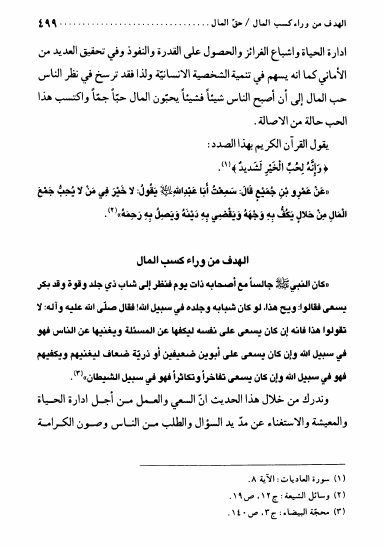 الهدف من وراء كسب المال / حقّ المال ................................ ٤٩٩
ادارة الحياة واشباع الغرائز والحصول على القدرة والنفوذ وفي تحقيق العديد من
الأماني كما انه يسهم في تنمية الشخصية الانسانيّة ولذا فقد ترسخ في نظر الناس
حب المال إلى أن أصبح الناس شيئاً فشيئاً يحبّون المال حبّاً جمّاً واكتسب هذا
الحب حالة من الاصالة.
يقول القرآن الكريم بهذا الصدد:
﴿ وَإِنَّهُ لِحُبِّ الْخَيْرِ لَشَدِيدٌ ﴾(١).
«عَنْ عَمْرِو بْنِ جُمَيْعٍ قَالَ: سَمِعْتُ أَبَا عَبْدِاللهِ ﷺ يَقُولُ: لا خَيْرَ فِي مَنْ لا يُحِبُّ جَمْعَ
الْمَالِ مِنْ حَلالٍ يَكُفُّ بِهِ وَجْهَهُ وَيَقْضِي بِهِ دَيْنَهُ وَيَصِلُ بِهِ رَحِمَهُ»(٢).
الهدف من وراء كسب المال
«كان النبي ﷺ جالساً مع أصحابه ذات يوم فنظر إلى شاب ذي جلد وقوة وقد بكر
يسعى فقالوا: ويح هذا، لو كان شبابه وجلده في سبيل الله! فقال صلّى الله عليه وآله: لا
تقولوا هذا فانه إن كان يسعى على نفسه ليكفها عن المسئلة ويغنيها عن الناس فهو
في سبيل الله وإن كان يسعى على أبوين ضعيفين أو ذريّة ضعاف ليغنيهم ويكفيهم
فهو في سبيل الله وإن كان يسعى تفاخراً وتكاثراً فهو في سبيل الشيطان»(٣).
وندرك من خلال هذا الحديث انّ السعي والعمل من أجل ادارة الحياة
والمعيشة والاستغناء عن مدّ يد السؤال والطلب من الناس وصون الكرامة
(١) سورة العاديات: الآية ٨.
(٢) وسائل الشيعة: ج١٢، ص١٩.
(٣) محجّة البيضاء: ج٣، ص١٤٠.